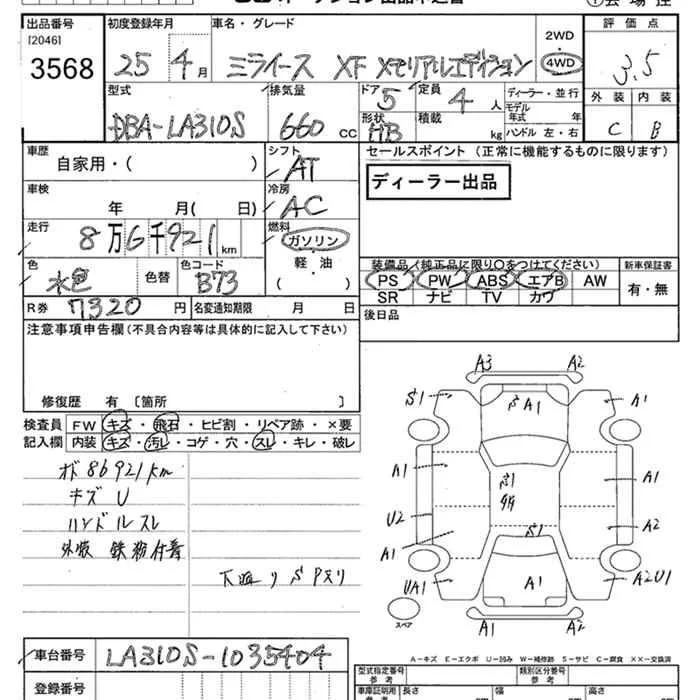 出品番号 初度登録年月 車名・グレード 2WD 評価点
[2046]
3568 25年 4月 ミライース XF メモリアルエディション 4WD 3.5
型式 排気量 ドア 5 定員 4人 ディーラー・並行 外装 内装
DBA-LA310S 660cc 形状 HB 積載 kg モデル年式 年 ハンドル 左・右 C B
車歴 シフト セールスポイント (正常に機能するものに限ります)
自家用・( ) AT
ディーラー出品
車検 冷房
年 月(日) AC
走行 燃料
8万6千921km ガソリン
軽・油
( )
色 色替 色コード
水色 B73
装備品(純正品に限り○をつけてください) 新車保証書
PS PW ABS エアB AW 有・無
SR ナビ TV カワ
R券 7320円 名変通知期限 月 日
後日品
注意事項申告欄(不具合内容等は具体的に記入して下さい)
修復歴 有 〔箇所 〕
検査員 FW キズ・飛石・ヒビ割・リペア跡・×要
記入欄 内装 キズ・汚レ・コゲ・穴・スレ・キレ・破レ
オド 86921km
キズ U
ハンドルスレ
外装 鉄粉付着
下廻り S
A3 A2
S1 A1 A1
A1 S1 A1
U2 A2
A1 S1
UA1 A1 A2U1
A1 A2
スペア
A-キズ E-エクボ U-凹み W-補修跡 S-サビ C-腐食 XX-交換済
車台番号 LA310S-1035404
登録番号
型式指定番号 参考 類別区分番号 参考
車庫証明用 長さ 幅 高さ